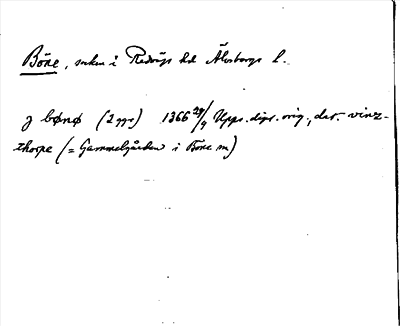 Böne, socken i Redvägs hd Älvsborgs l.
j bønø (2 ggr) 1366 29/9 Upps. dipl. orig., dat. vinz-
thorpe (= Gammelgården i Böne sn)